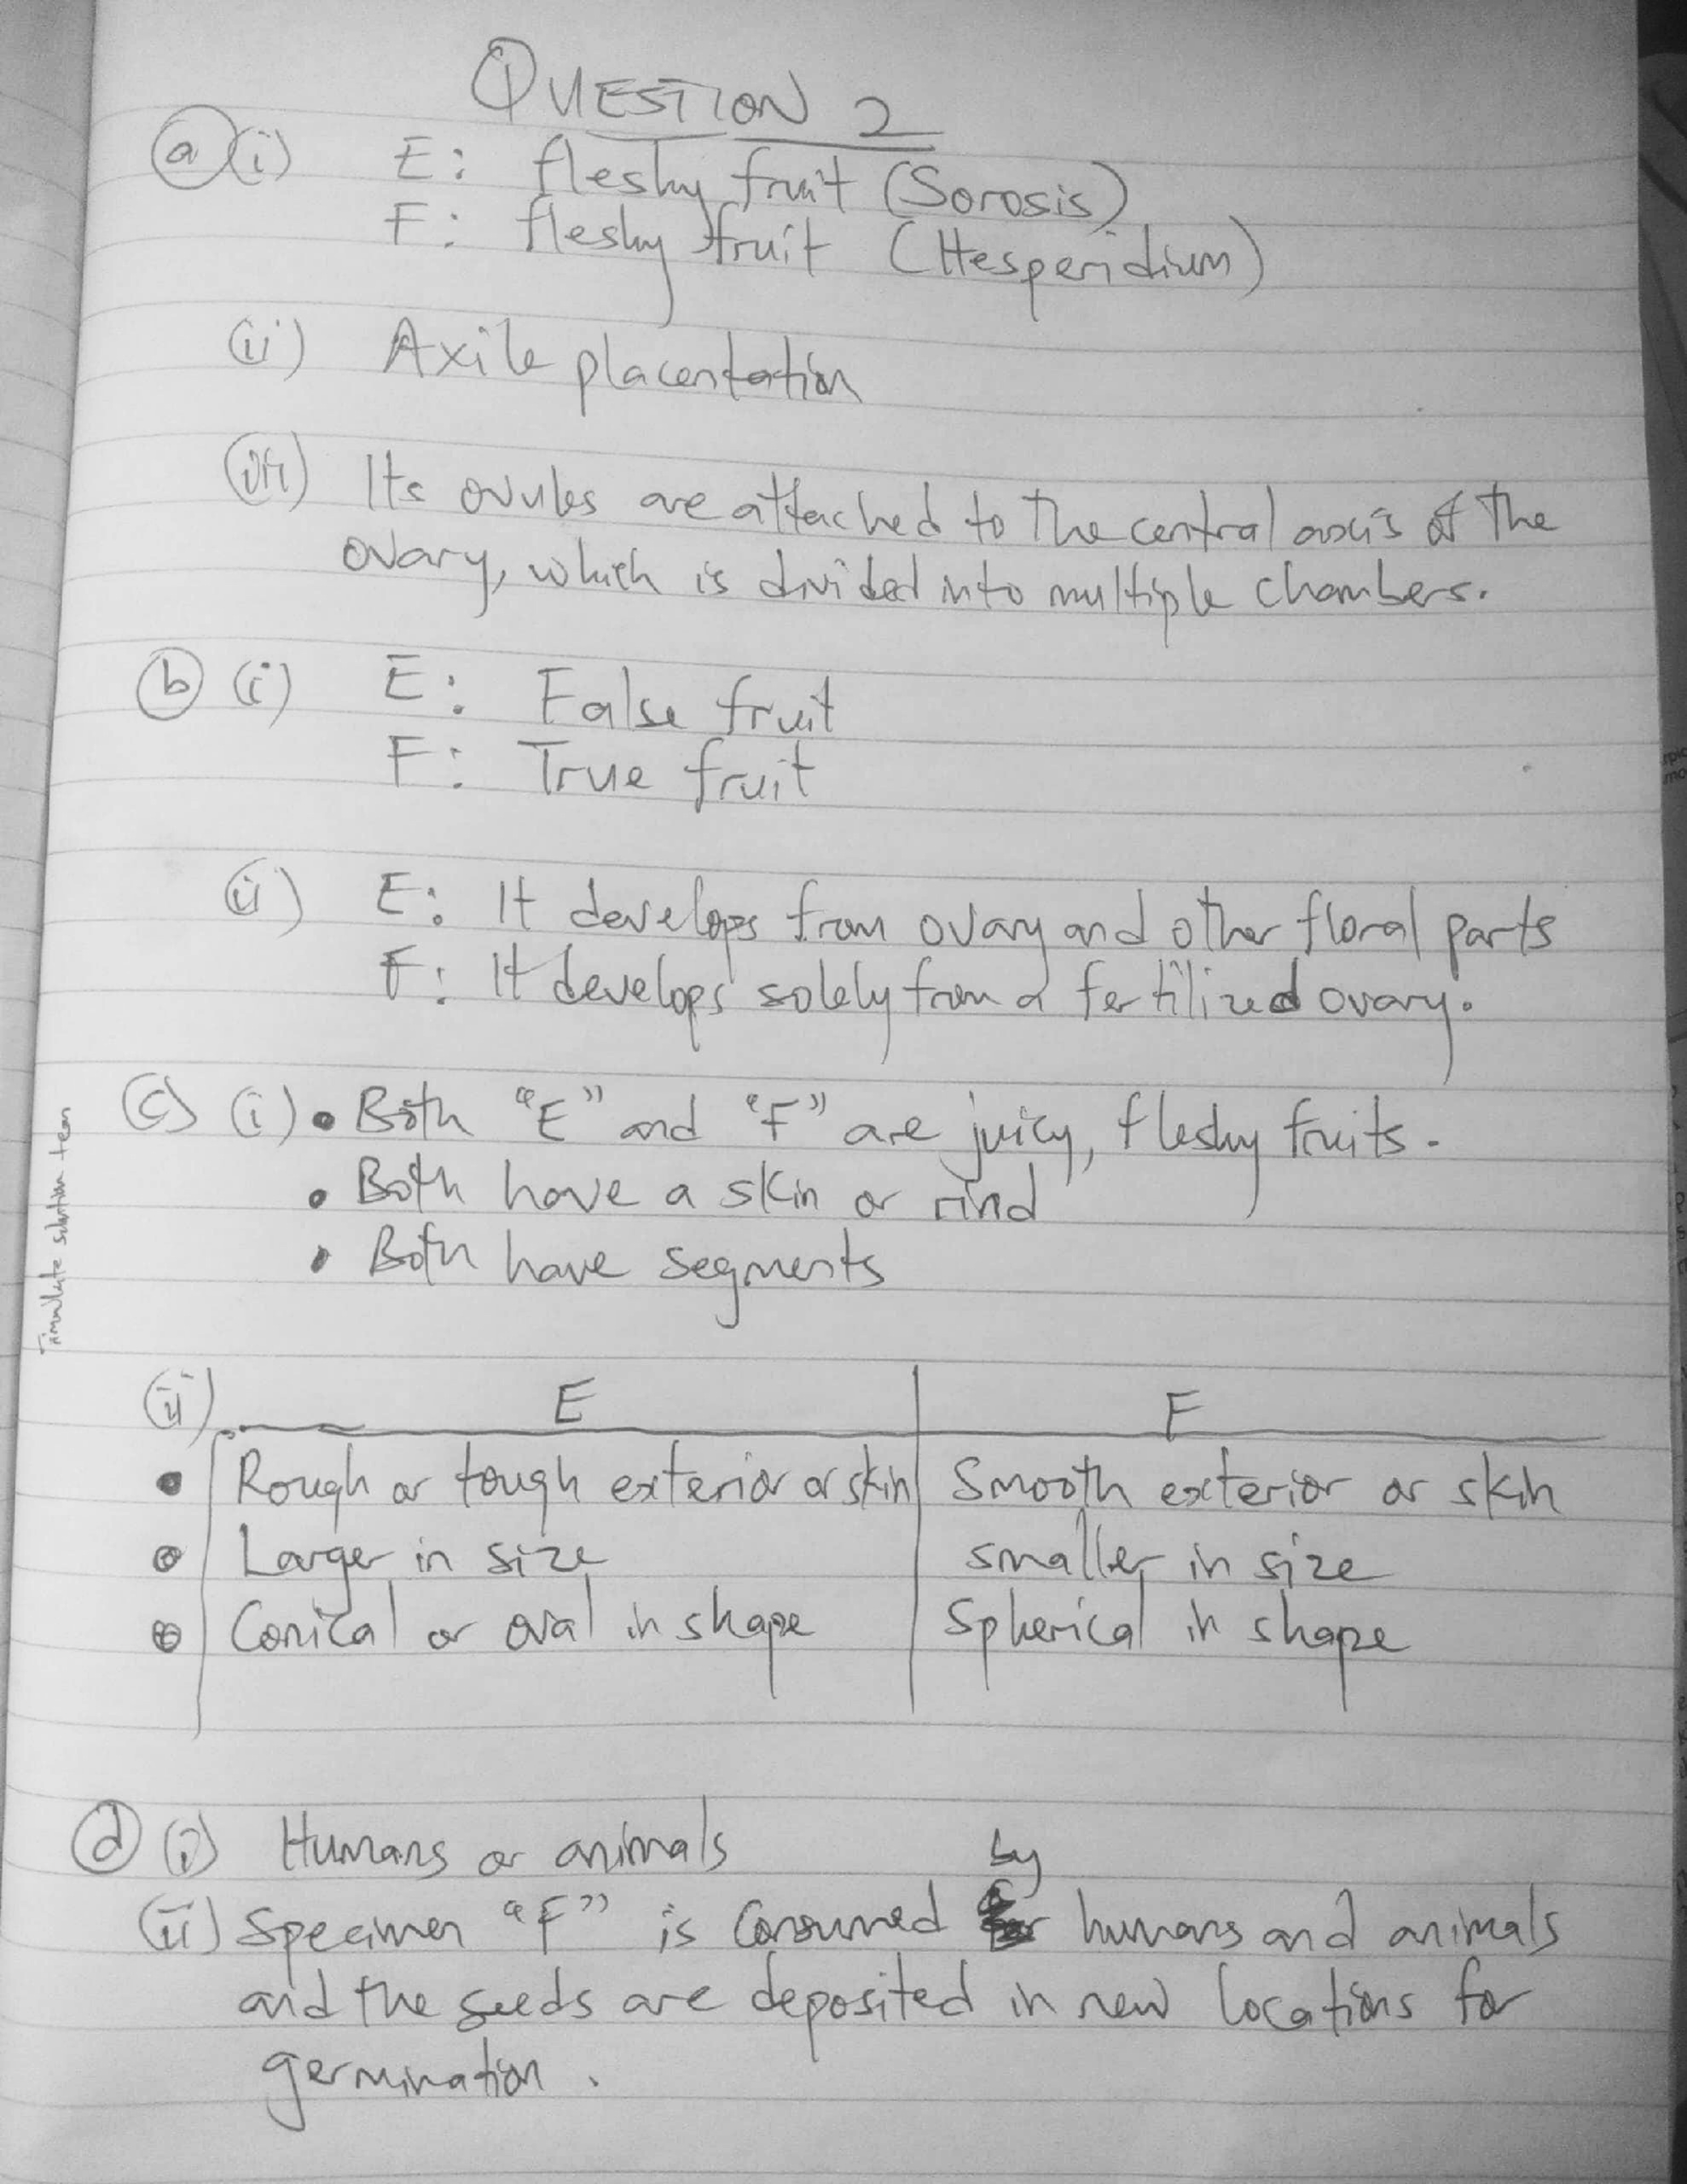 QUESTION 2
(a) (i) E: fleshy fruit (Sorosis)
F: fleshy fruit (Hesperidium)
(ii) Axile placentation
(iii) Its ovules are attached to the central axis of the
ovary, which is divided into multiple chambers.
(b) (i) E: False fruit
F: True fruit
(ii) E: It develops from ovary and other floral parts
F: It develops solely from a fertilized ovary.
(c) (i) • Both "E" and "F" are juicy, fleshy fruits.
• Both have a skin or rind
• Both have segments
(ii) E F
• Rough or tough exterior or skin Smooth exterior or skin
• Larger in size smaller in size
• Conical or oval in shape Spherical in shape
(d) (i) Humans or animals
(ii) Specimen "F" is consumed by humans and animals
and the seeds are deposited in new locations for
germination.
solution team